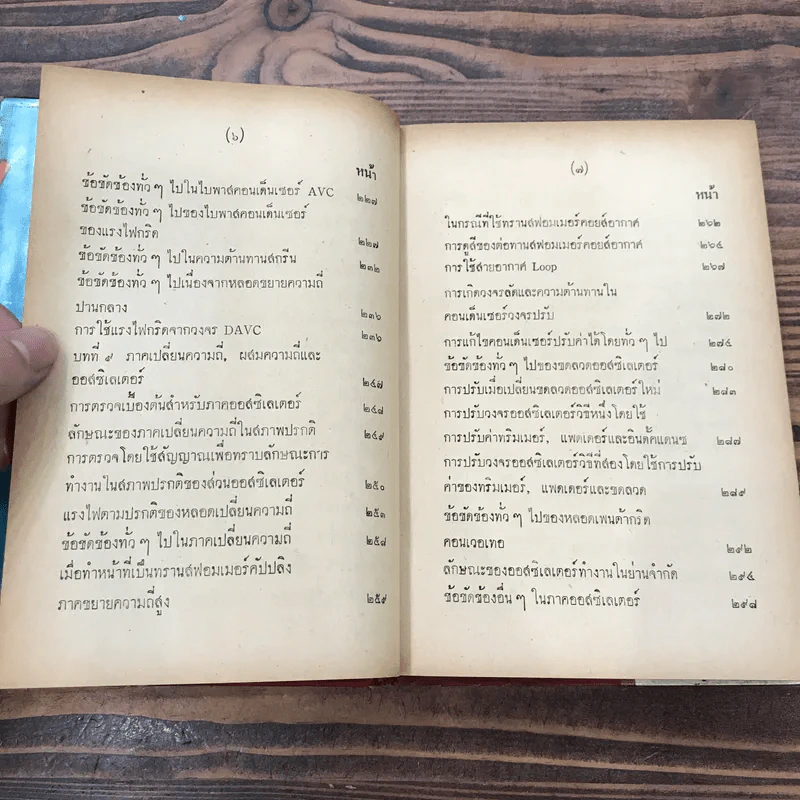 (๖)
หน้า
ข้อขัดข้องทั่ว ๆ ไปในไบพาสคอนเด็นเซอร์ AVC ๒๒๗
ข้อขัดข้องทั่ว ๆ ไปของไบพาสคอนเด็นเซอร์
ของแรงไฟกริด ๒๒๗
ข้อขัดข้องทั่ว ๆ ไปในความต้านทานสกรีน ๒๓๒
ข้อขัดข้องทั่ว ๆ ไปเนื่องจากหลอดขยายความถี่
ปานกลาง ๒๓๖
การใช้แรงไฟกริดจากวงจร DAVC ๒๓๖
บทที่ ๙ ภาคเปลี่ยนความถี่, ผสมความถี่และ
ออสซิเลเตอร์ ๒๔๗
การตรวจเบื้องต้นสำหรับภาคออสซิเลเตอร์ ๒๔๘
ลักษณะของภาคเปลี่ยนความถี่ในสภาพปรกติ ๒๔๙
การตรวจโดยใช้สัญญาณเพื่อทราบลักษณะการ
ทำงานในสภาพปรกติของส่วนออสซิเลเตอร์ ๒๕๐
แรงไฟตามปรกติของหลอดเปลี่ยนความถี่ ๒๕๓
ข้อขัดข้องทั่ว ๆ ไปในภาคเปลี่ยนความถี่ ๒๕๘
เมื่อทำหน้าที่เป็นทรานสฟอมเมอร์คัปปลิง
ภาคขยายความถี่สูง ๒๕๙
(๗)
หน้า
ในกรณีที่ใช้ทรานสฟอมเมอร์คอยส์อากาศ ๒๖๒
การดูสีของต่อทานสฟอมเมอร์คอยส์อากาศ ๒๖๔
การใช้สายอากาศ Loop ๒๖๗
การเกิดวงจรลัดและความต้านทานใน
คอนเด็นเซอร์วงจรปรับ ๒๗๒
การแก้ไขคอนเด็นเซอร์ปรับค่าได้โดยทั่ว ๆ ไป ๒๗๔
ข้อขัดข้องทั่ว ๆ ไปของขดลวดออสซิเลเตอร์ ๒๘๐
การปรับเมื่อเปลี่ยนขดลวดออสซิเลเตอร์ใหม่ ๒๘๓
การปรับวงจรออสซิเลเตอร์วิธีหนึ่งโดยใช้
การปรับค่าทริมเมอร์, แพดเตอร์และอินดั๊คแตนซ ๒๘๗
การปรับวงจรออสซิเลเตอร์วิธีที่สองโดยใช้การปรับ
ค่าของทริมเมอร์, แพดเตอร์และขดลวด ๒๘๙
ข้อขัดข้องทั่ว ๆ ไปของหลอดเพนต้ากริด
คอนเวอเทอ ๒๙๒
ลักษณะของออสซิเลเตอร์ทำงานในย่านจำกัด ๒๙๔
ข้อขัดข้องอื่น ๆ ในภาคออสซิเลเตอร์ ๒๙๘